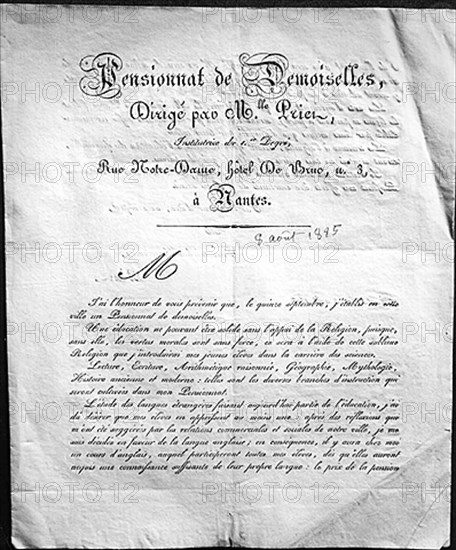 Pensionnat de Demoiselles,
Dirigé par M.lle Prier,
Institutrice du 1.er Degré,
Rue Notre-Dame, hôtel De Bruc, n. 3,
à Nantes.
8 août 1825
M
J'ai l'honneur de vous prévenir que, le quinze septembre, j'établis en cette
ville un Pensionnat de demoiselles.
Une éducation ne pouvant être solide sans l'appui de la Religion, puisque,
sans elle, les vertus morales sont sans force, ce sera à l'aide de cette sublime
Religion que j'introduirai mes jeunes élèves dans la carrière des sciences.
Lecture, Ecriture, Arithmétique raisonnée, Géographie, Mythologie,
Histoire ancienne et moderne: telles sont les diverses branches d'instruction qui
seront cultivées dans mon Pensionnat.
L'étude des langues étrangères faisant aujourd'hui partie de l'éducation, j'ai
dû désirer que mes élèves en apprissent au moins une: après des réflexions qui
m'ont été suggérées par les relations commerciales et sociales de notre ville, je me
suis décidée en faveur de la langue anglaise; en conséquence, il y aura chez moi
un cours d'anglais, auquel participeront toutes mes élèves, dès qu'elles auront
acquis une connaissance suffisante de leur propre langue: le prix de la pension
PHOTO12